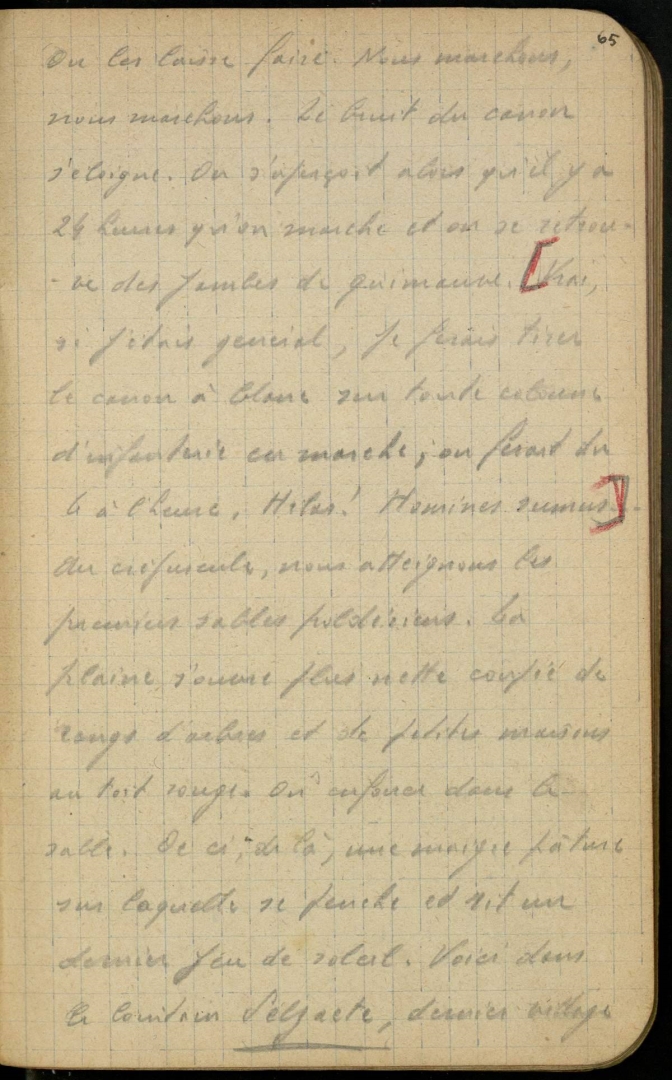 65
On les laisse faire. Nous marchons,
nous marchons. Le bruit du canon
s'éloigne. On s'aperçoit alors qu'il y a
24 heures qu'on marche et on se retrou-
- ve des jambes de guimauve. [Vrai,
si j'étais general, je ferais tirer
le canon à blanc sur toute colonne
d'infanterie en marche; on ferait du
6 à l'heure. Hélas! Homines sumus].
Au crépuscule, nous atteignons les
premiers sables poldériens. La
plaine s'ouvre plus nette coupée de
rangs d'arbres et de petites maisons
au toit rouge. On enfonce dans le
sable. De ci, de là, une maigre pâture
sur laquelle se penche et rit un
dernier feu de soleil. Voici dans
le lointain Selzaete, dernier village